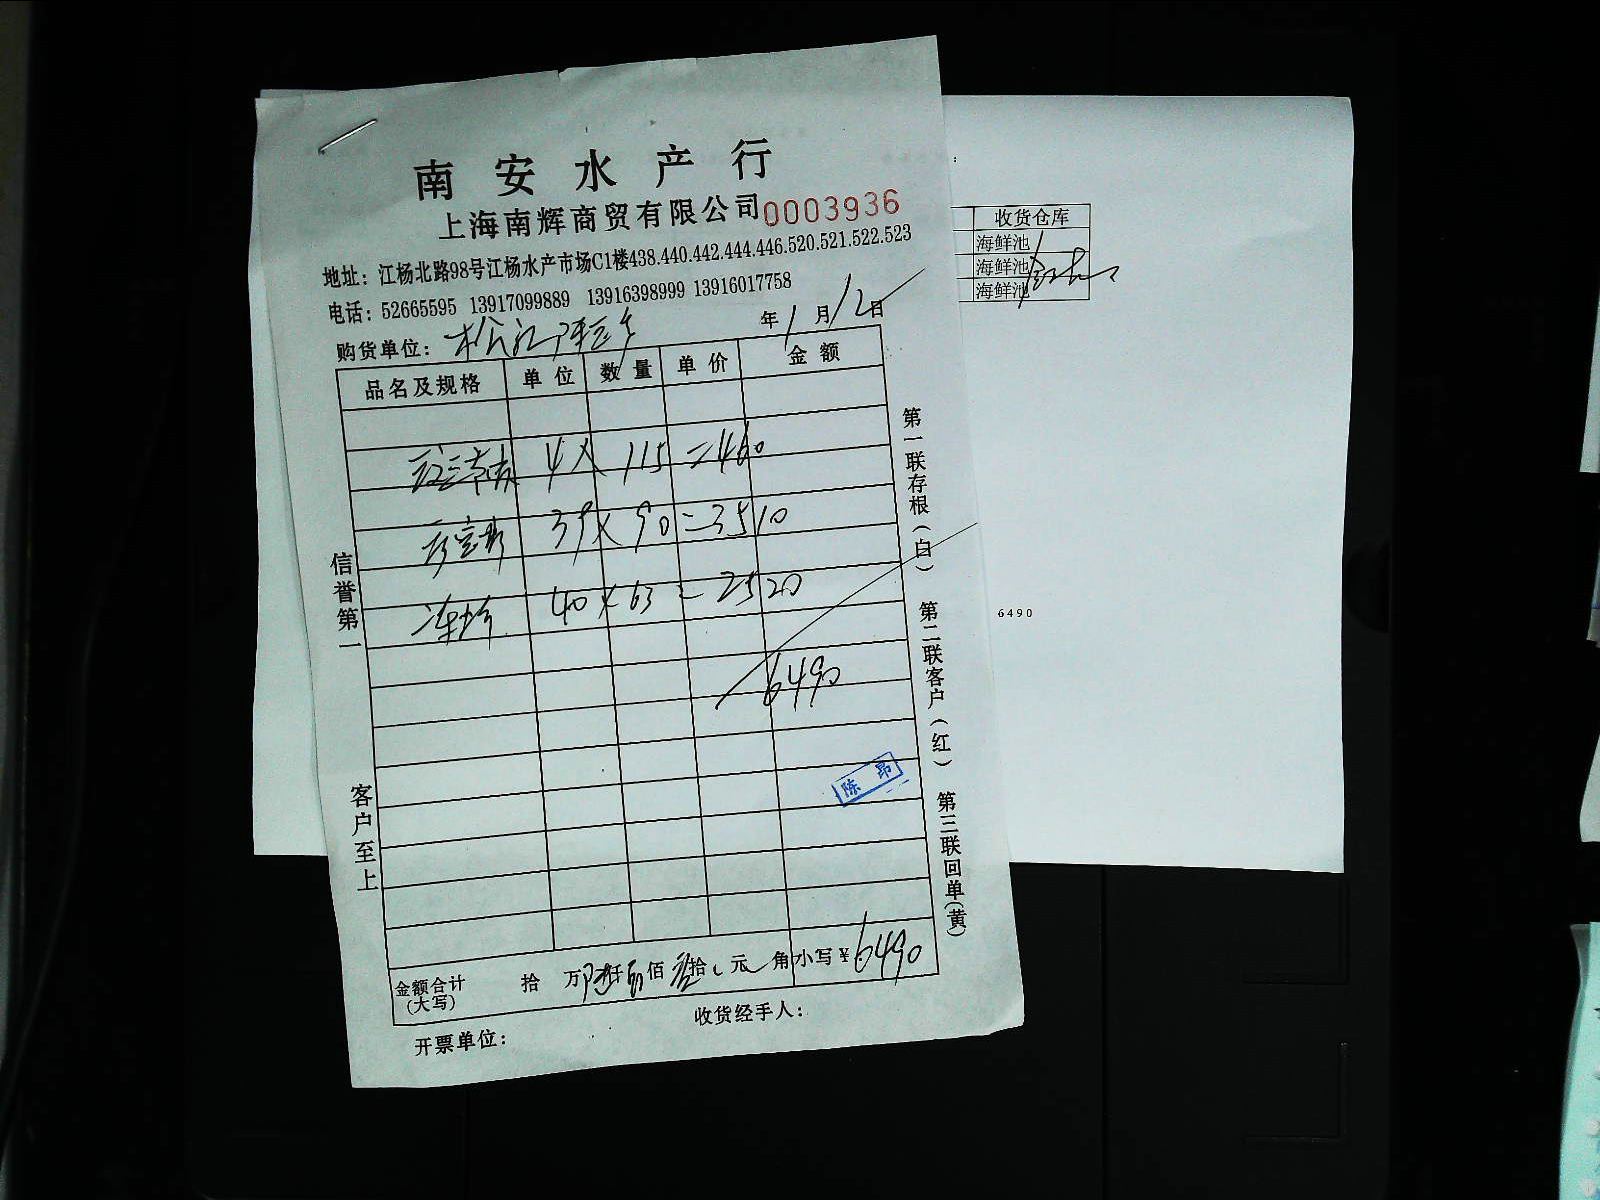 南安水产行
上海南辉商贸有限公司 0003936
地址：江杨北路98号江杨水产市场C1楼438.440.442.444.446.520.521.522.523
电话：52665595 13917099889 13916398999 13916017758
购货单位：松江 年1月12日
品名及规格 单位 数量 单价 金额
4×115=460
39×90=3510
40×63=2520
6490
陈昂
金额合计(大写) 拾 万陆仟 佰 拾 元 角 小写￥6490
开票单位： 收货经手人：
信誉第一
客户至上
第一联存根(白) 第二联客户(红) 第三联回单(黄)
收货仓库
海鲜池
海鲜池
海鲜池
6490